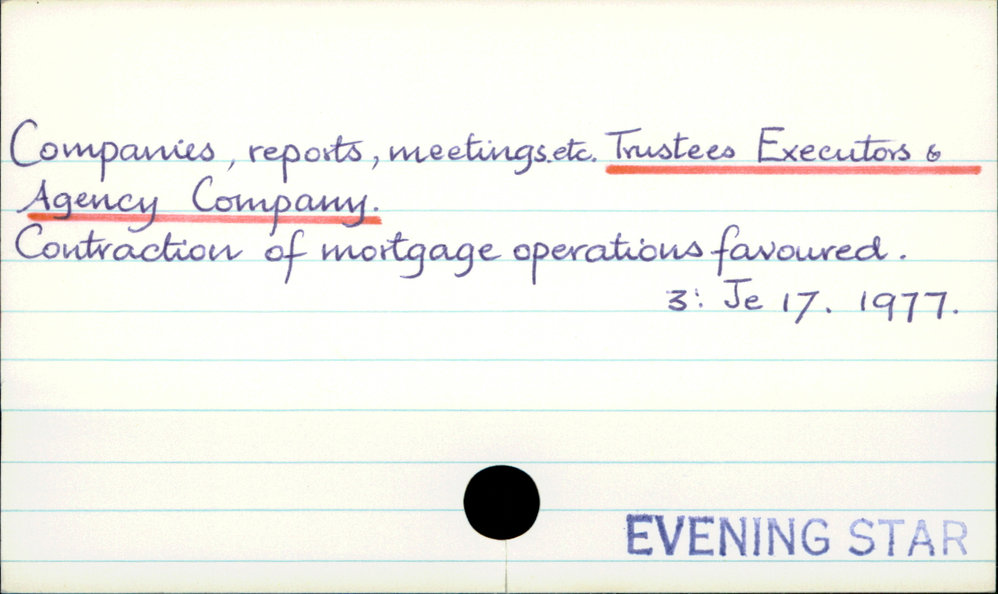 Companies, reports, meetings.etc. Trustees Executors &
Agency Company.
Contraction of mortgage operations favoured.
3: Je 17. 1977.
EVENING STAR